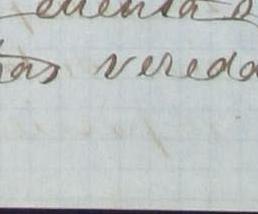 cuenta o
as vereda